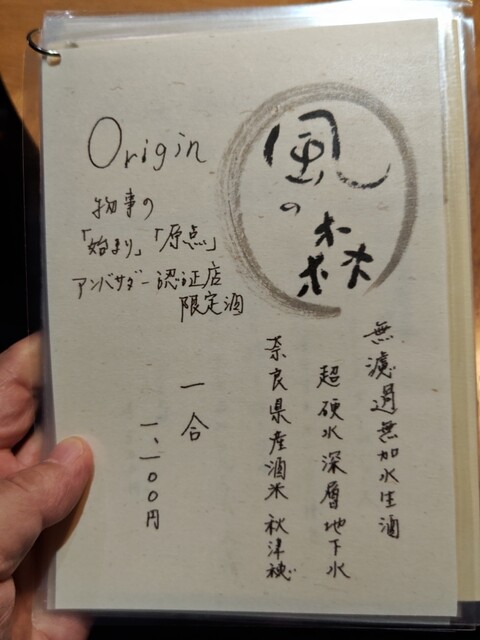 風の森
無濾過無加水生酒
超硬水深層地下水
奈良県産酒米 秋津穂
Origin
物事の
「始まり」「原点」
アンバサダー認証店
限定酒
一合
一、一００円